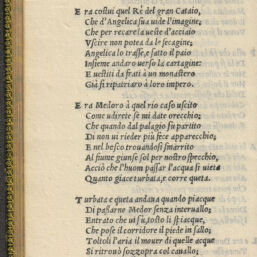 E ra costui quel Re del gran Cataio,
Che d'Angelica sua uide l'imagine,
Che per recarla ueste d'acciaio
Vscire non potea da le secagine,
Angelica lo trasse, e fatto il paio
Insieme andaro uerso la cartagine:
E uestiti da frati à un monastero
Già si ripatriaro à loro impero.
E ra Medoro à quel rio caso uscito
Come udirete se mi date orecchio;
Che quando dal palagio fù partito
Di non ui rieder piu fece apparecchio;
E nel bosco trouandosi smarrito
Al fiume giunse sol per nostro specchio,
Acciò che l'huom passar l'acqua si uieta
Quanto giace turbata, e corre queta.
T urbata e queta andaua quando piacque
Di passarne Medor senza interuallo;
Entrato che ui fu, tosto li spiacque,
Che pose il corridore il piede in fallo;
Toltoli l'aria il mouer di quelle acque
Si ritrouò sozzopra col cauallo;